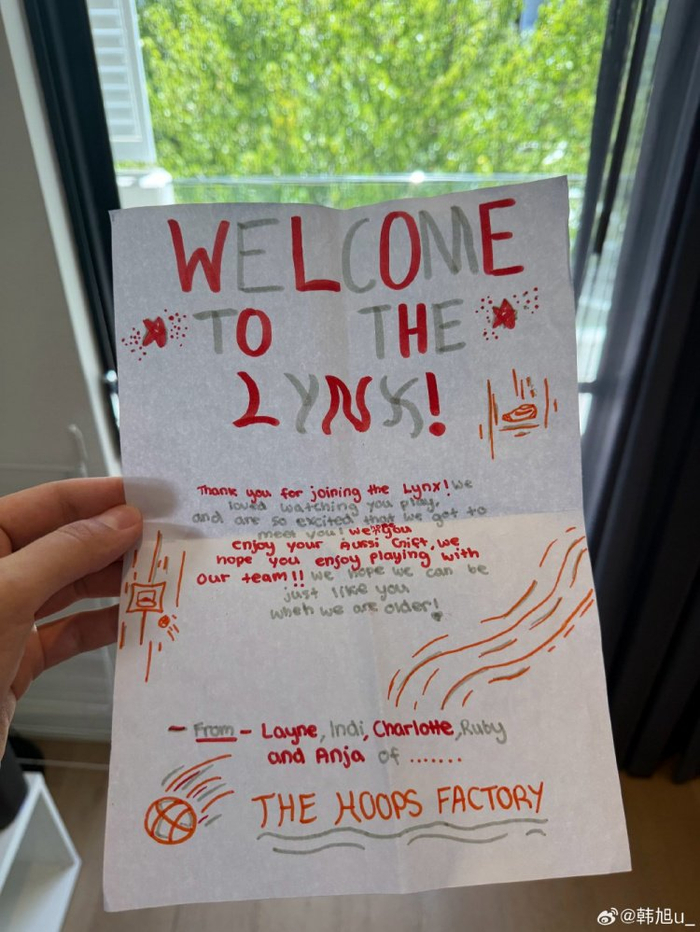 WELCOME
TO THE
LYNX!
Thank you for joining the Lynx! We
loved watching you play,
and are so excited that we got to
meet you! We
you
enjoy your Aussi Gift, we
hope you enjoy playing with
our team!! We hope we can be
just like you
when we are older!
- From - Layne, Indi, Charlotte, Ruby
and Anja of .......
THE HOOPS FACTORY
@韩旭u_